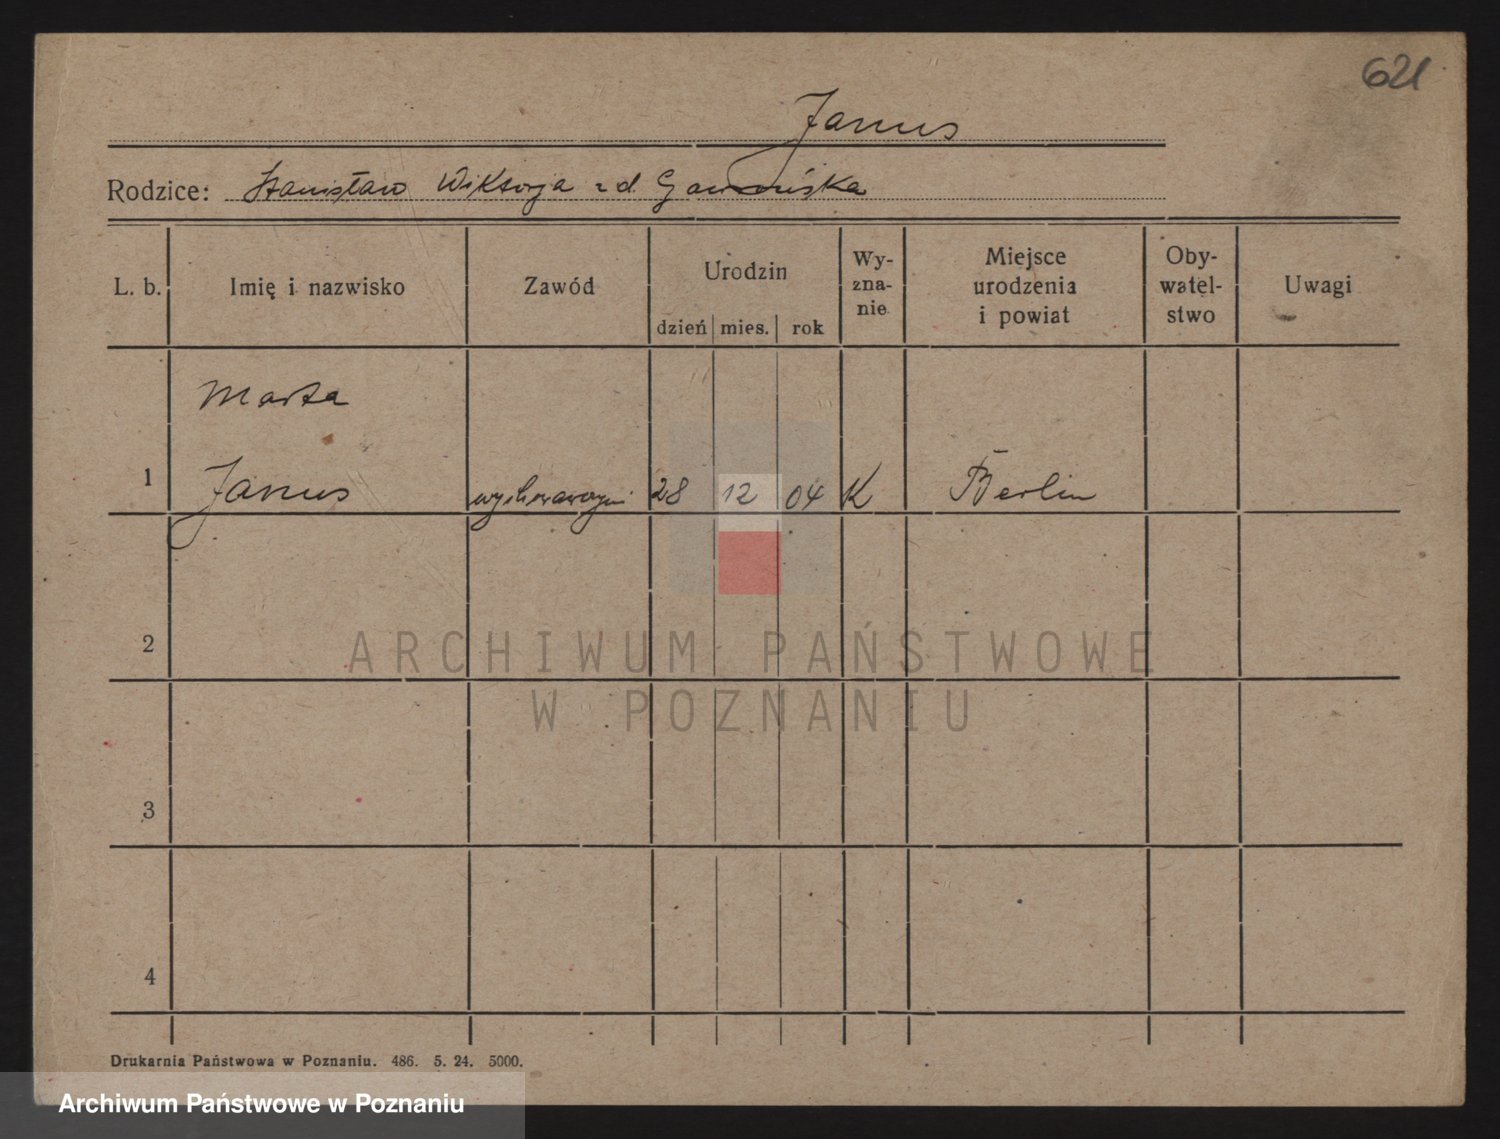 621
Janus
Rodzice: Stanisław Wiktorja z d. Gawrońska
L. b. Imię i nazwisko Zawód Urodzin dzień mies. rok Wy-zna-nie Miejsce urodzenia i powiat Oby-watel-stwo Uwagi
Marta
1 Janus 28 12 04 K Berlin
2
ARCHIWUM PAŃSTWOWE
W POZNANIU
3
4
Drukarnia Państwowa w Poznaniu. 486. 5. 24. 5000.
Archiwum Państwowe w Poznaniu